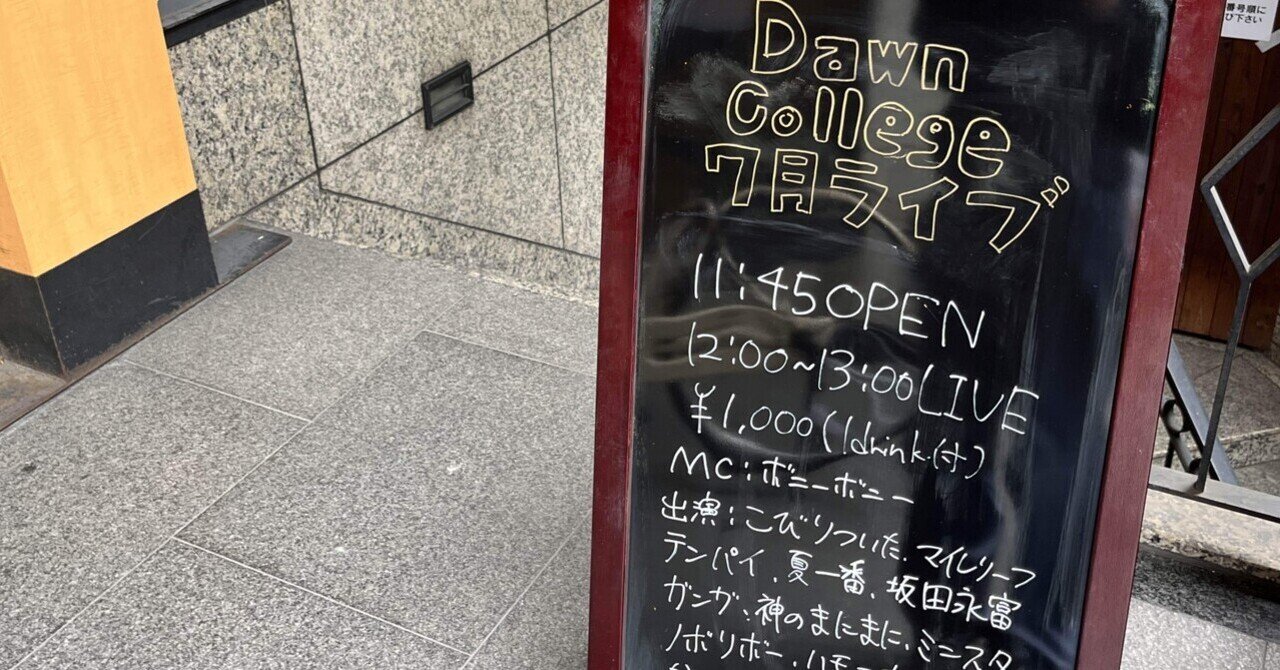 Dawn
College
7月ライブ
11:45OPEN
12:00~13:00LIVE
¥1,000(1drink付)
MC:ボニーボニー
出演:こびりついた、マイルリーフ
テンパイ、夏一番、坂田永富
ガンガ、神のまにまに、ミニスタ
ノボリボー、ハモ
番号順に
び下さい